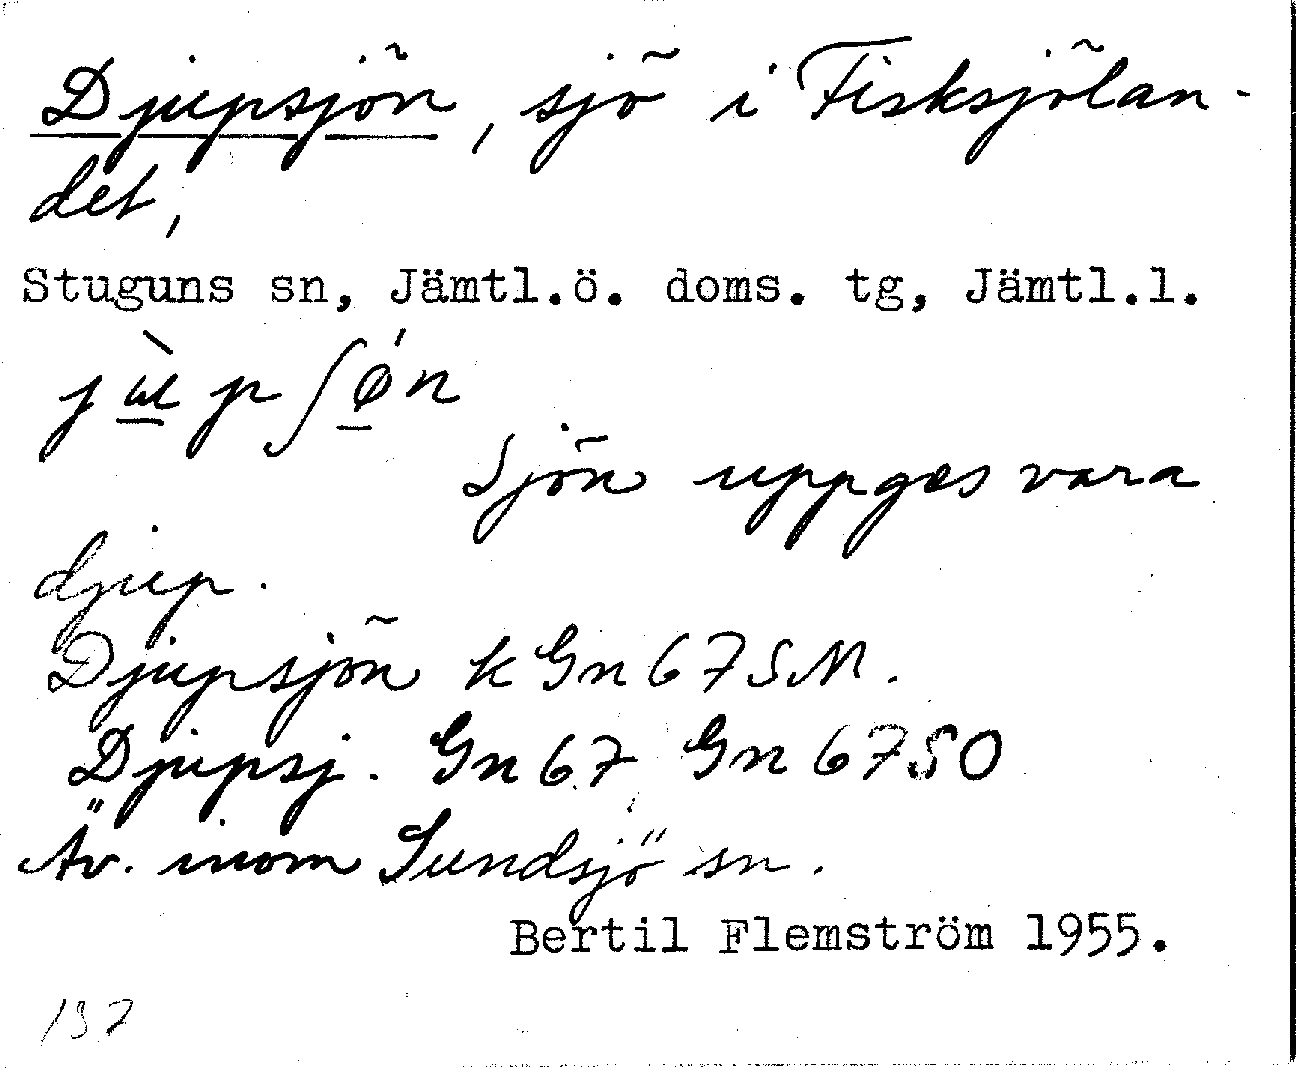 Djupsjön, sjö i Fisksjölan-
det,
Stuguns sn, Jämtl.ö. doms. tg, Jämtl.l.
jùp ʃǿn
Sjön uppges vara
djup.
Djupsjön k Gn 67 SM.
Djupsj. Gn 67 Gn 67 SO
Äv. inom Sundsjö sn.
Bertil Flemström 1955.
137